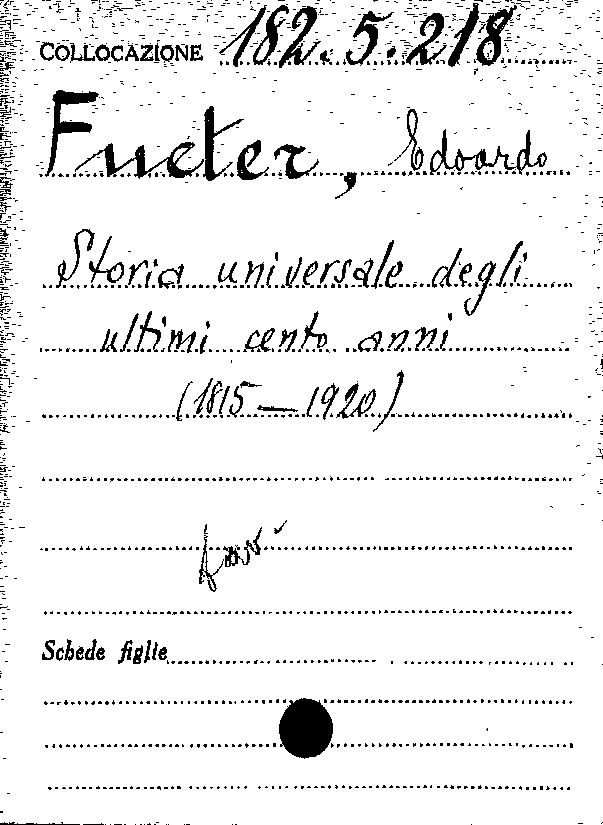 COLLOCAZIONE 182.5.218
Fueter, Edoardo
Storia universale degli
ultimi cento anni
(1815—1920)
Schede figlie